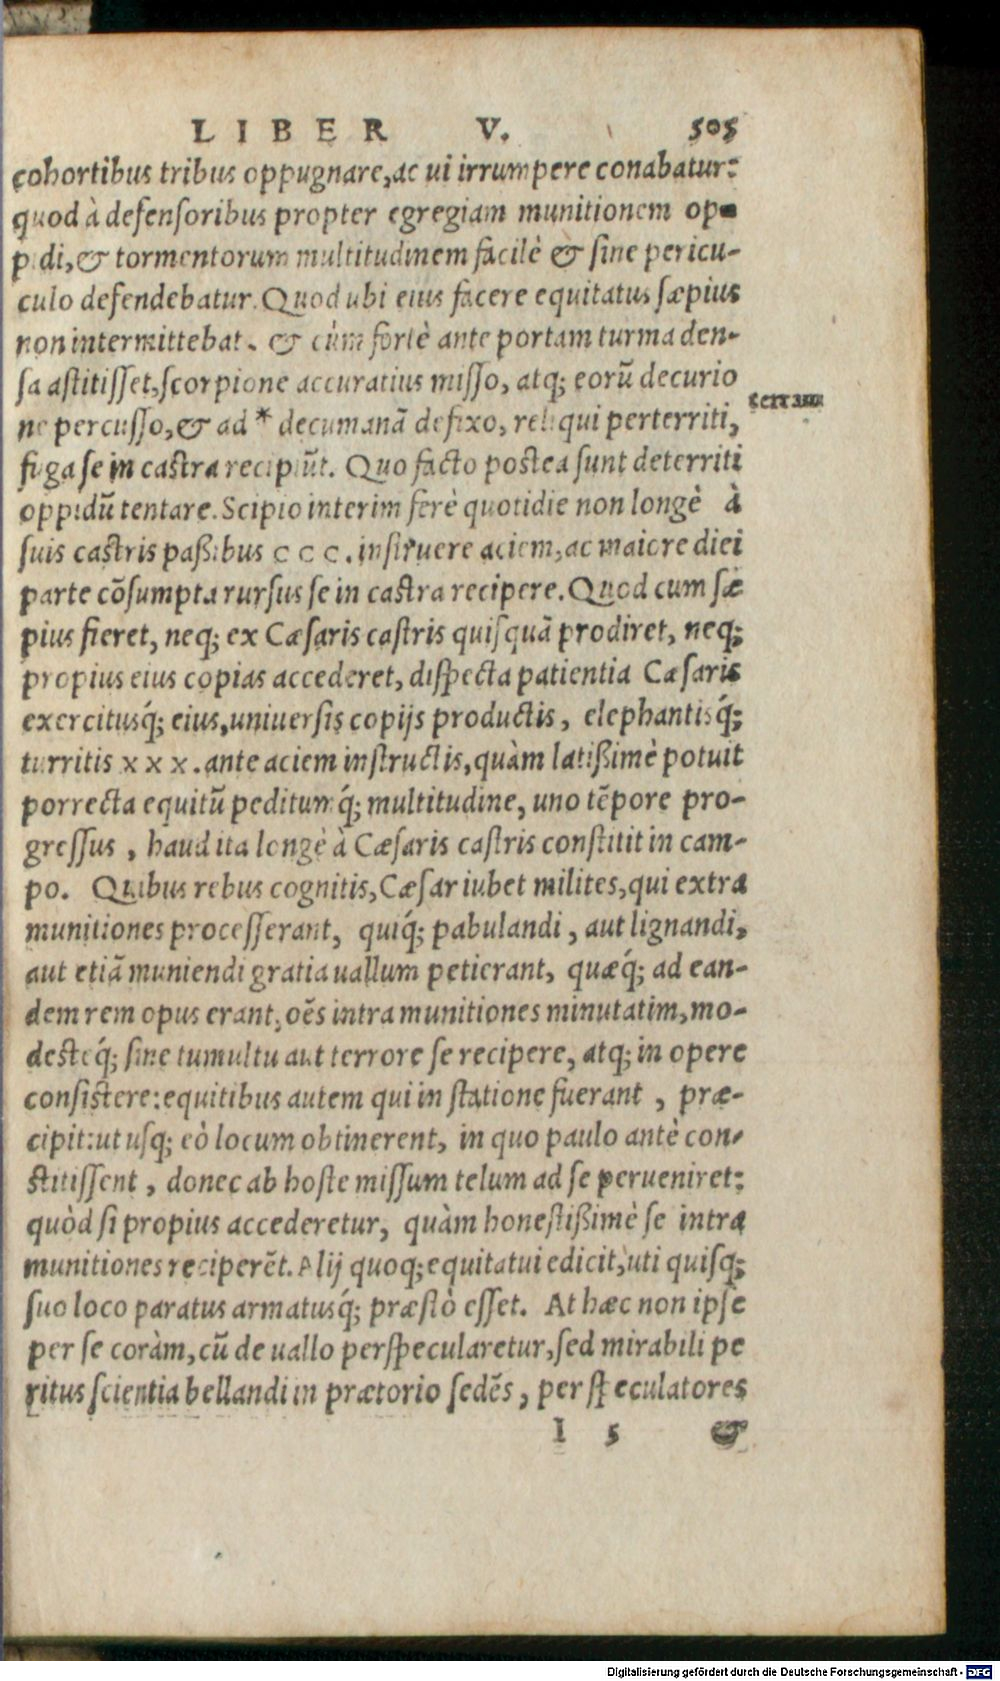 LIBER V. 505
cohortibus tribus oppugnare, ac ui irrumpere conabatur:
quod à defensoribus propter egregiam munitionem op-
pidi, & tormentorum multitudinem facilè & sine pericu-
culo defendebatur. Quod ubi eius facere equitatus sæpius
non intermittebat. & cùm fortè ante portam turma den-
sa astitisset, scorpione accuratius misso, atq; eorũ decurio
ne percusso, & ad * decumanã defixo, reliqui perterriti,
terram
fuga se in castra recipiũt. Quo facto postea sunt deterriti
oppidũ tentare. Scipio interim ferè quotidie non longè à
suis castris paßibus CCC. instruere aciem, ac maiore diei
parte cõsumpta rursus se in castra recipere. Quod cum sæ
pius fieret, neq; ex Cæsaris castris quisquã prodiret, neq;
propius eius copias accederet, dispecta patientia Cæsaris
exercitusq́; eius, uniuersis copijs productis, elephantisq́;
turritis XXX. ante aciem instructis, quàm latißimè potuit
porrecta equitũ peditumq́; multitudine, uno tẽpore pro-
gressus, haud ita longè à Cæsaris castris constitit in cam-
po. Quibus rebus cognitis, Cæsar iubet milites, qui extra
munitiones processerant, quiq́; pabulandi, aut lignandi,
aut etiã muniendi gratia uallum petierant, quæq́; ad ean-
dem rem opus erant, oẽs intra munitiones minutatim, mo-
desteq́; sine tumultu aut terrore se recipere, atq; in opere
consistere: equitibus autem qui in statione fuerant, præ-
cipit: ut usq; eò locum obtinerent, in quo paulo antè con-
stitissent, donec ab hoste missum telum ad se perueniret:
quòd si propius accederetur, quàm honestißimè se intra
munitiones reciperẽt. Alij quoq; equitatui edicit, uti quisq;
suo loco paratus armatusq́; præstò esset. At hæc non ipse
per se coràm, cũ de uallo perspecularetur, sed mirabili pe
ritus scientia bellandi in prætorio sedẽs, per speculatores
I 5 &
Digitalisierung gefördert durch die Deutsche Forschungsgemeinschaft - DFG